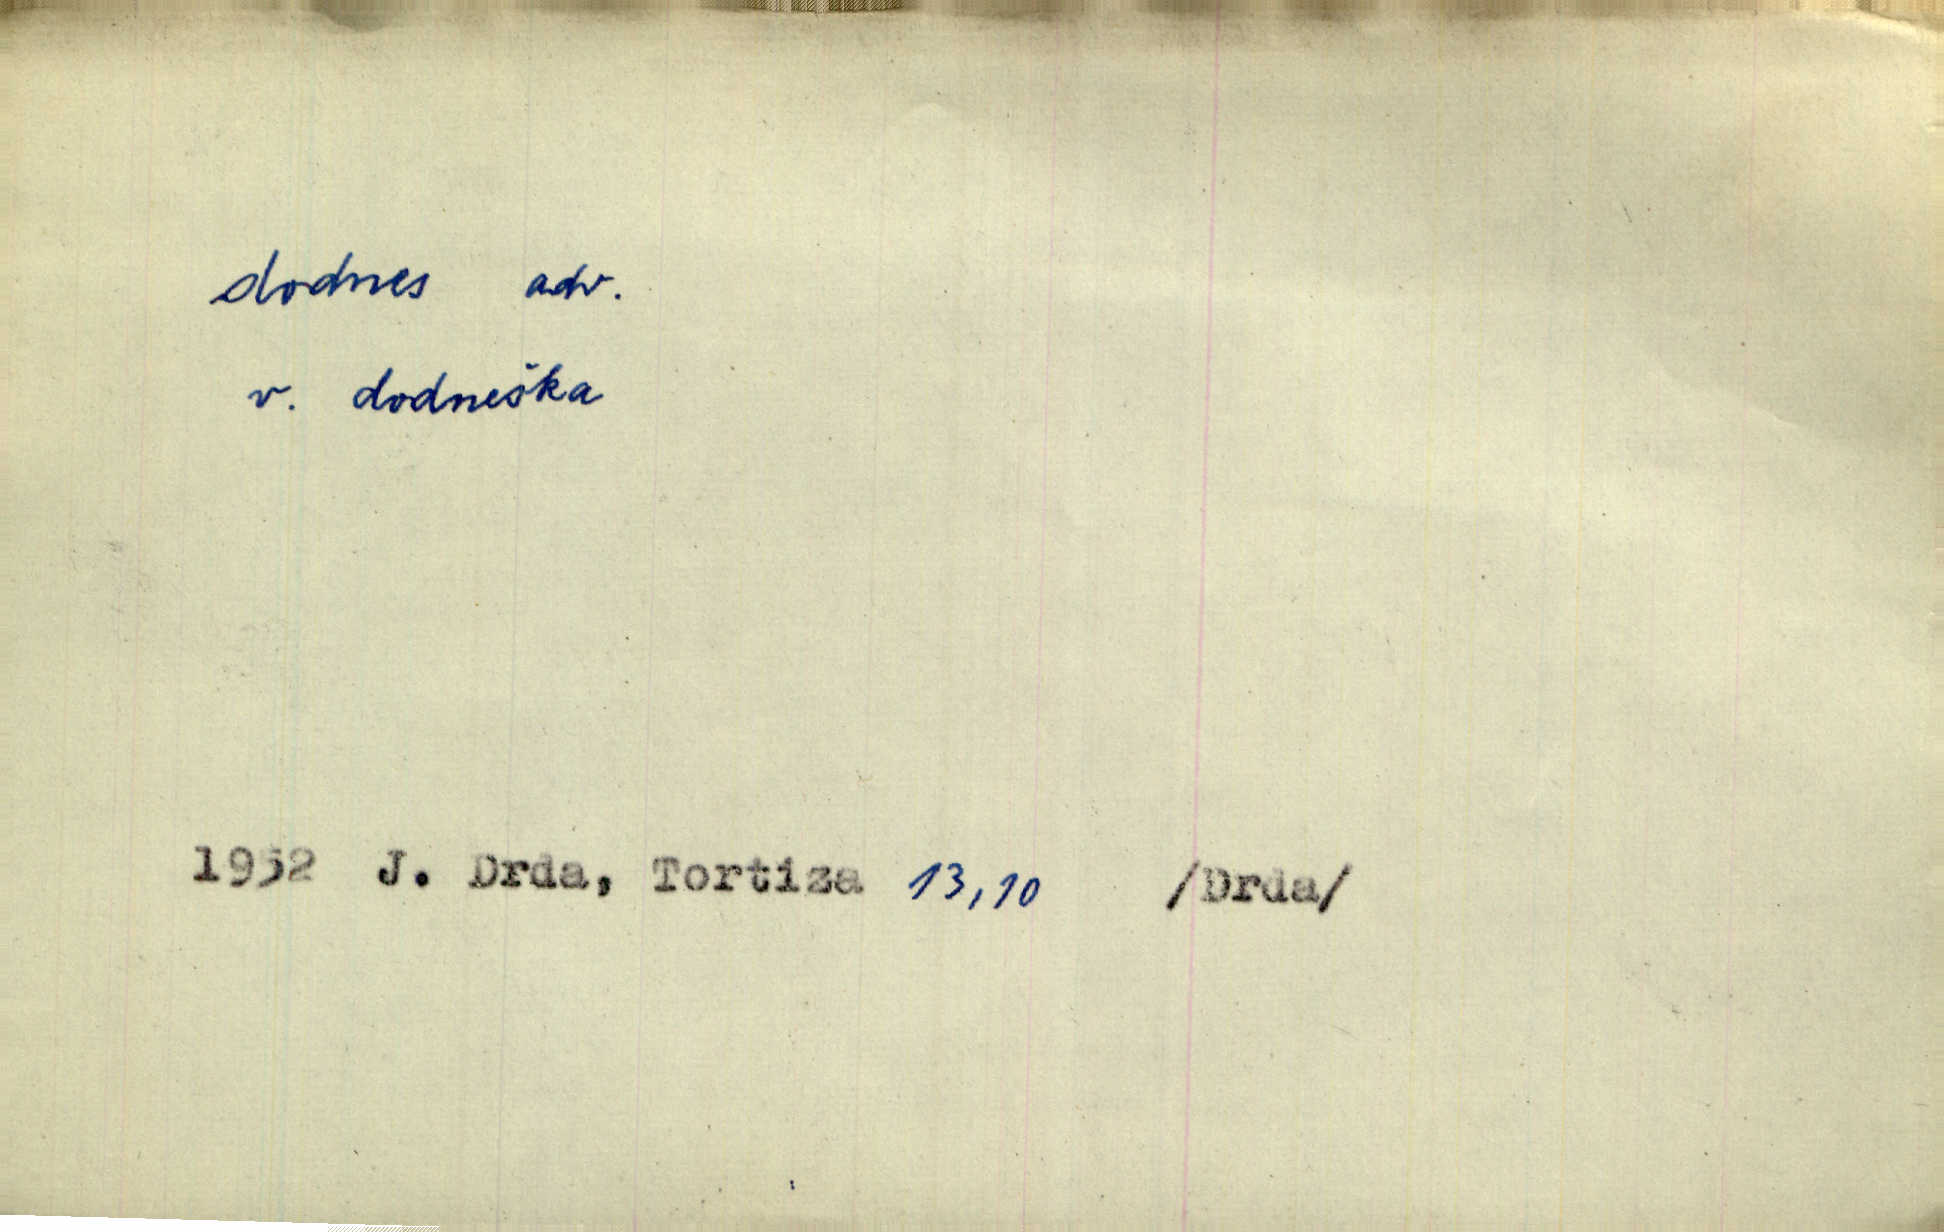 dodnes adv.
v. dodneška
1952 J. Drda, Tortiza 13,10 /Drda/